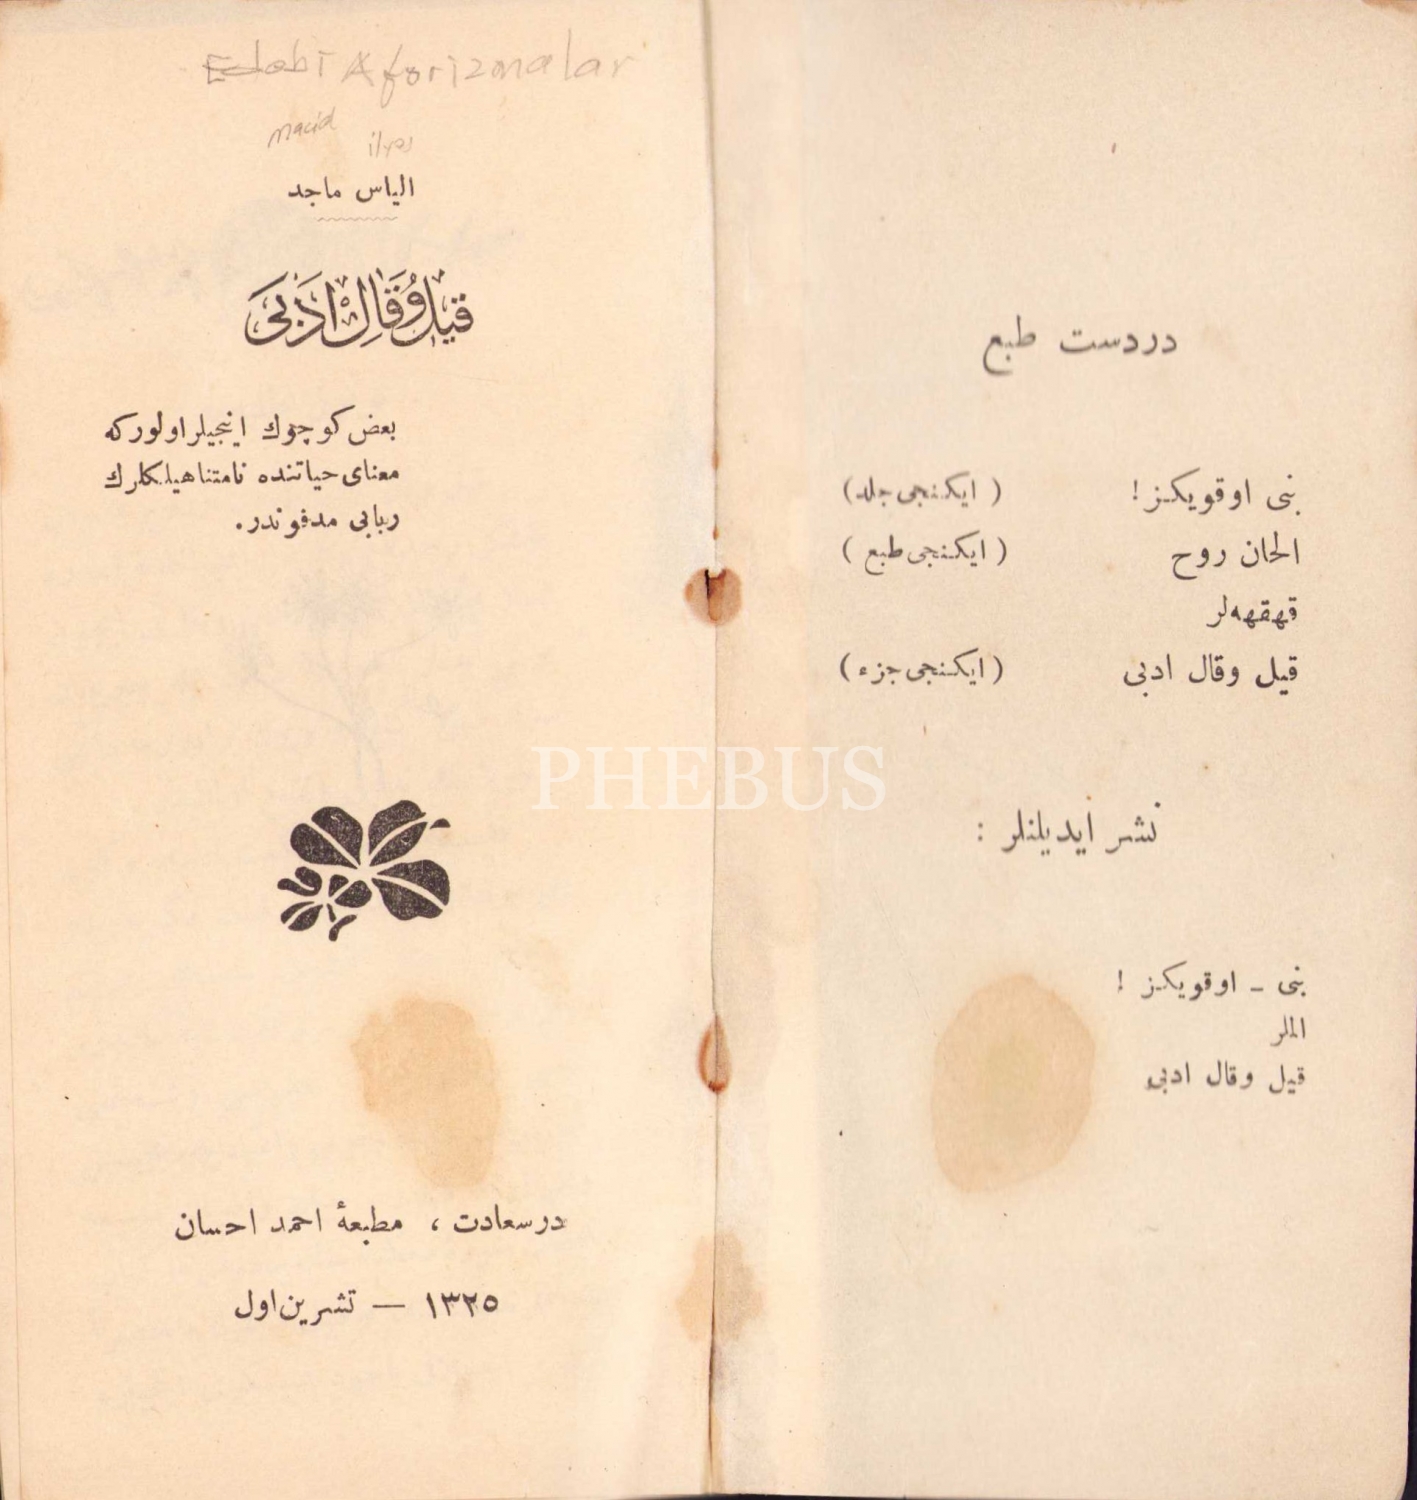 Edebi Aforizmalar
macid ilyas
الیاس ماجد
قیل وقال ادبی
بعض كوچوك اینجیلر اولور كه
معنای حیاتنده نامتناهیلكلرك
ربابی مدفوندر.
درسعادت ، مطبعهٔ احمد احسان
١٣٢٥ — تشرین اول
در دست طبع
بنی اوقویكز! ( ایكنجی جلد)
الحان روح ( ایكنجی طبع )
قهقهه‌لر
قیل وقال ادبی ( ایكنجی جزء )
نشر ایدیلنلر :
بنی - اوقویكز !
الملر
قیل وقال ادبی
PHEBUS